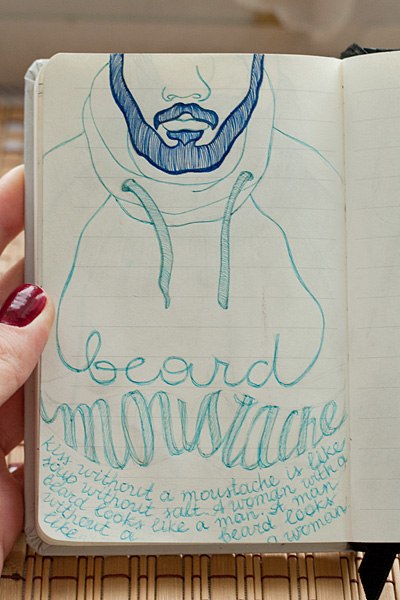 beard
moustache
Kiss without a moustache is like
soup without salt. A woman with a
beard looks like a man. A man
without a beard looks
like a woman